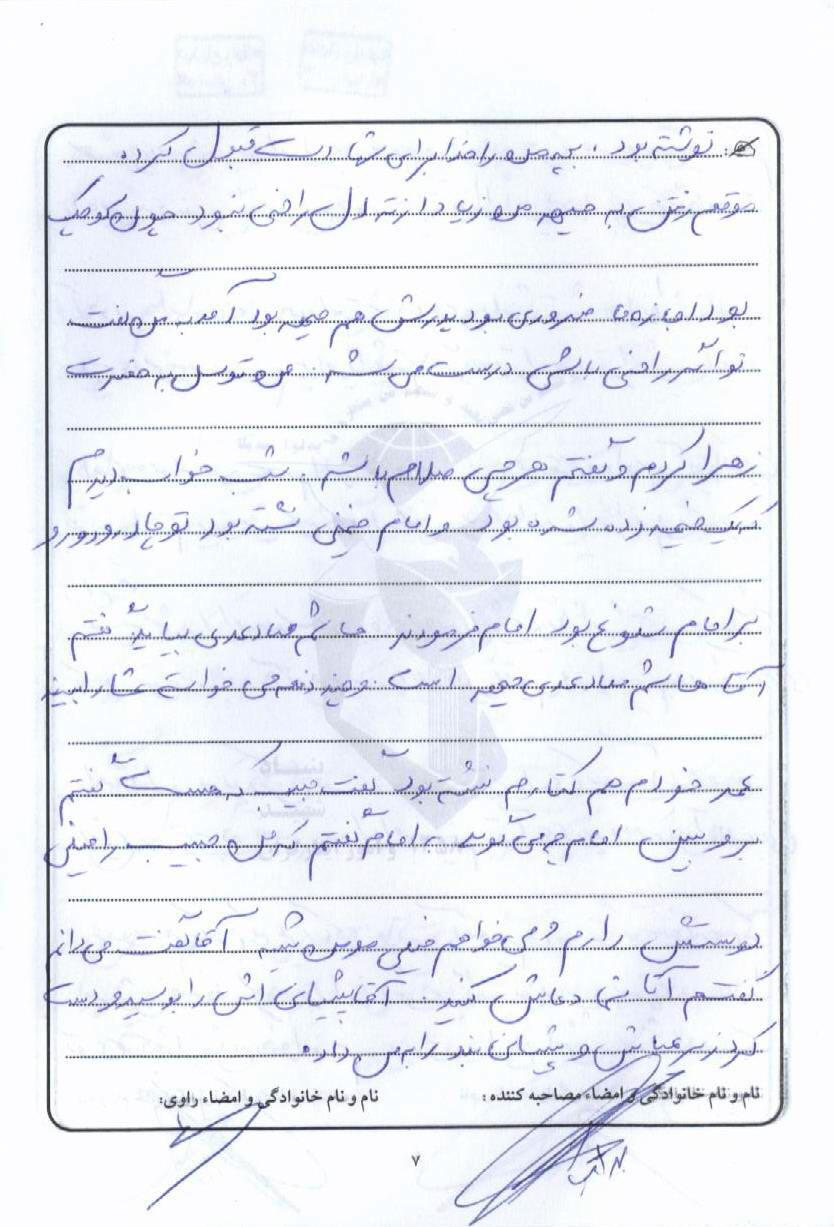 ج: نوشته بود. بچه من را خدا برای شهادت قبول کرده
موقع رفتن به جبهه من زیاد از ته دل راضی نبود چون کوچک
بود اجازه ما ضروری بود پدرش هم جبهه بود آمد به من گفت
تو اگر راضی باشی درست می شه. من توسل به حضرت
زهرا کردم و گفتم هر چی صلاحم باشه. شب خواب دیدم
که یک خیمه زده شده بود و امام خمینی نشسته بود تو چادر و دورو
بر امام شلوغ بود امام فرمودند هاشم بیاید گفتم
آقا هاشم جبهه است. و چند دفعه می خواست شما را ببیند
حبیب خودم هم کنارم نشسته بود گفت گفتم
برو ببین امام چه می گوید به امام گفتم که من حبیب را خیلی
دوستش دارم و می خواهم خیلی مومن بشه آقا گفت می دانم
گفتم آقا شما دعایش کنید. آقا پیشانی اش را بوسید و دست
کرد زیر عبایش و پیشانی بند را به من داد.
نام و نام خانوادگی و امضاء مصاحبه کننده : نام و نام خانوادگی و امضاء راوی:
۷